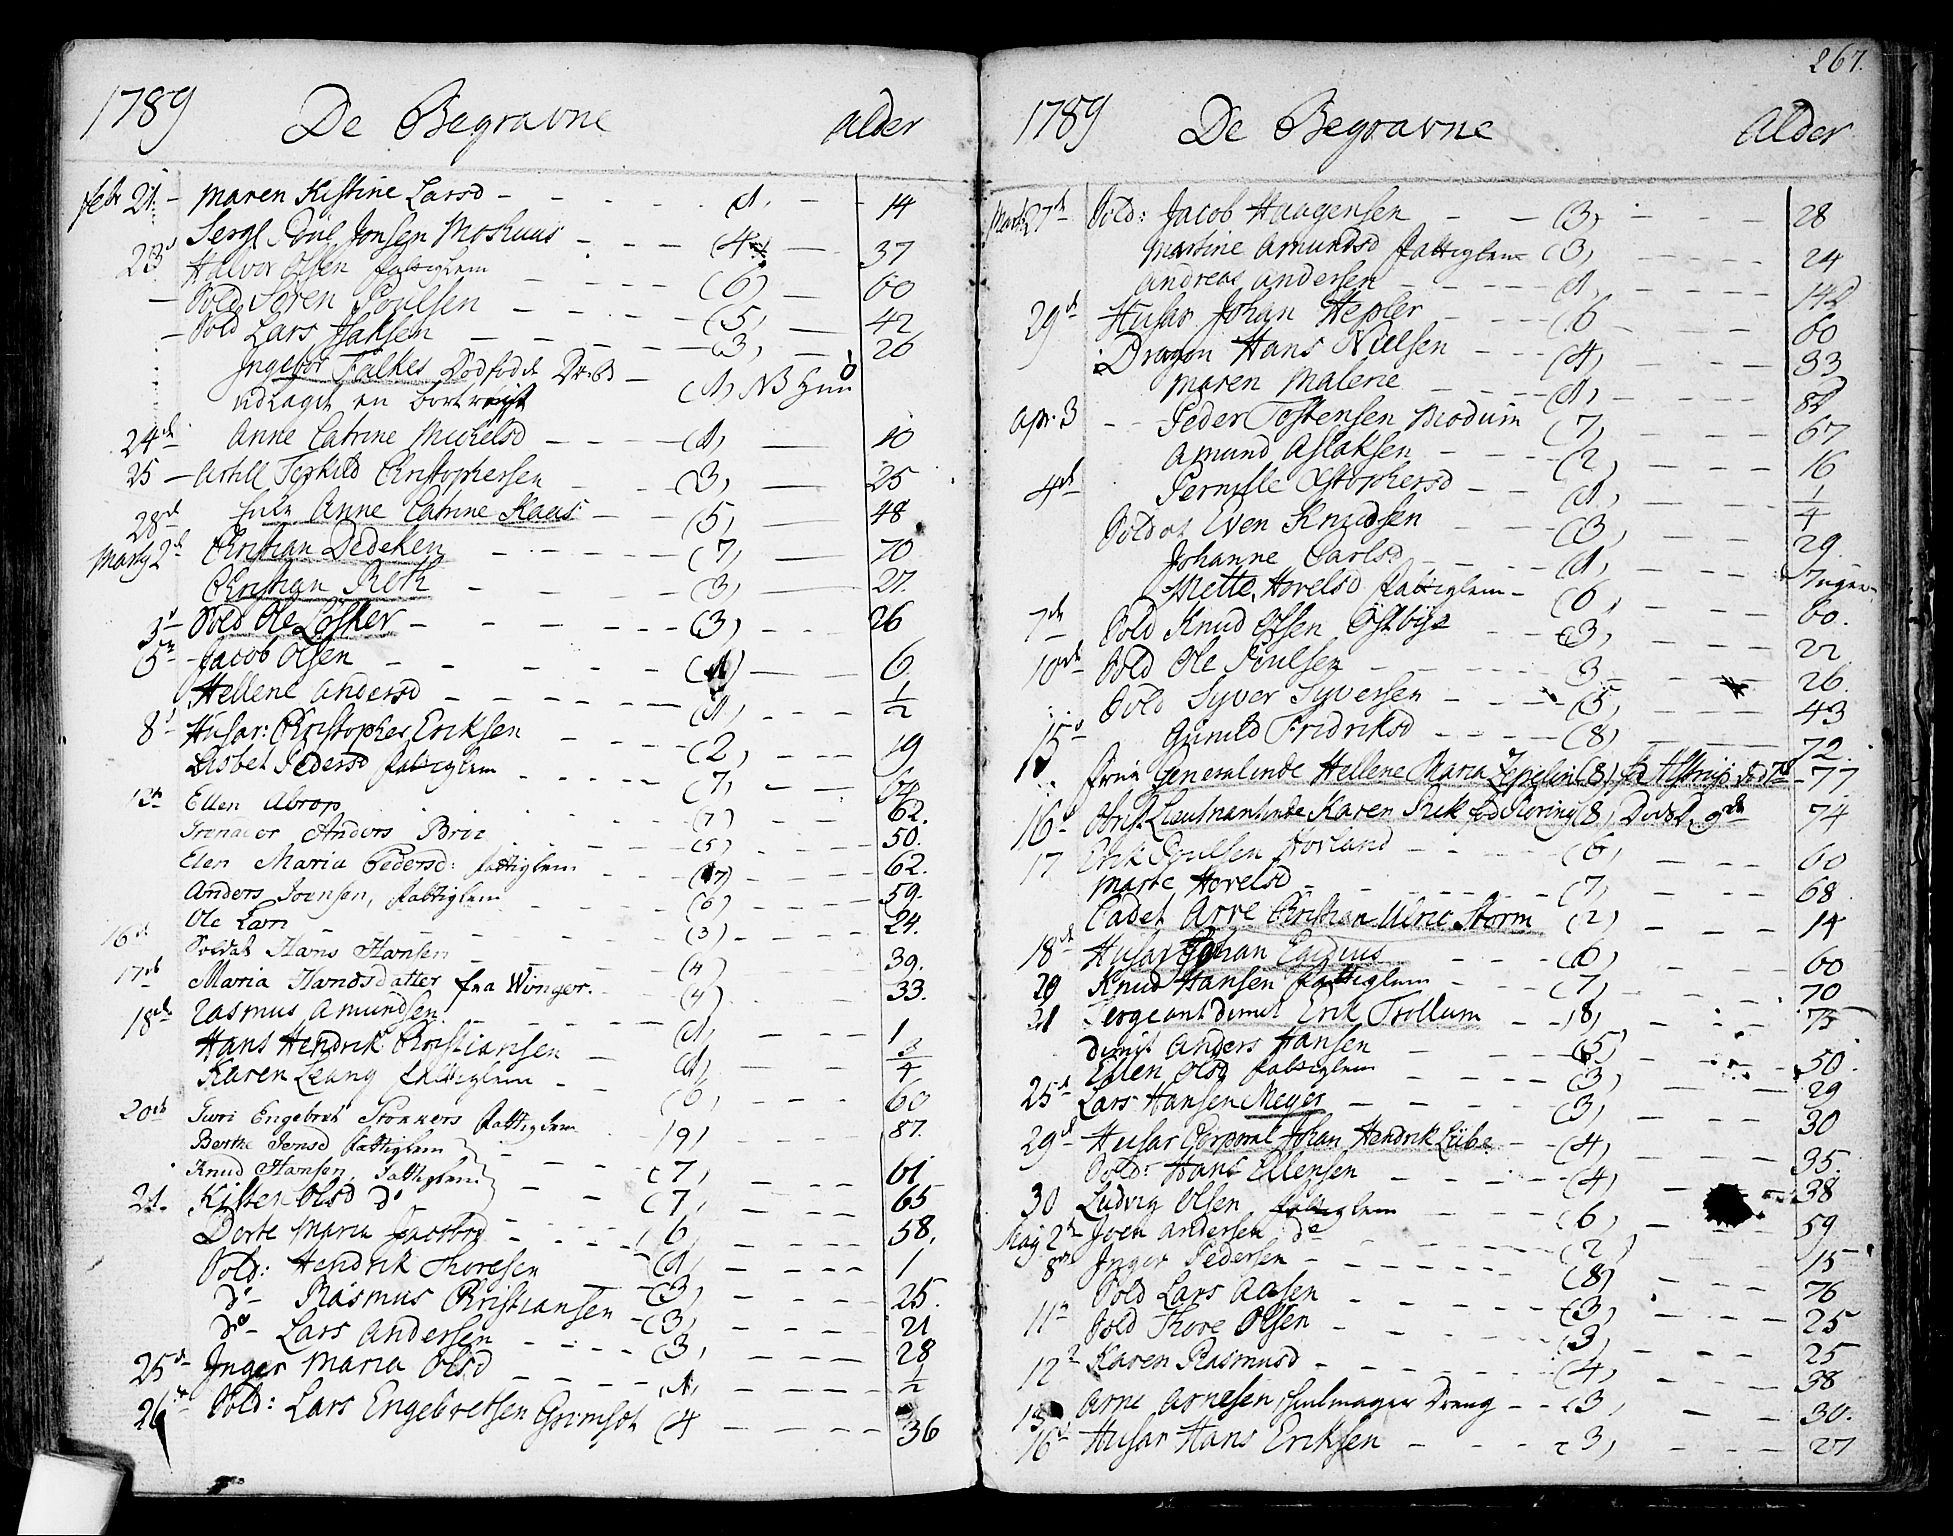 1789 De Begravne alder
febr 21. - Maren Kistine Larsd - (1, - 14
Sergt Poul Jonsen Moshuus - (4 - 37
23 Halvor Olsen fattiglem - (6) - 60
Sold Søren Poulsen - (5, - 42
Sold Lars Isaksen - (3, - 26
Ingebor Falkes Dødfød
udlagt en bortreist (1, NB Hun 0
24de Anne Catrine Michelsd - (1, - 10
25 - Artill Terkild Christophersen - (3, - 25
28de Anne Catrine Kaas - (5, - 48
Marty 2d Christian Dedeken - (7, - 70
Christian Roth - (3, - 27.
3d Sold Ole Løsker - (3) - 26
5 Jacob Olsen - (1) - 6
Hellene Andersd - (1, - 1/2
8 Husar: Christopher Eriksen - (2, - 19
Lisbet Pedersd fattiglem - (7,
13 Ellen Abrop - (7) - 62.
Grenader Anders Brie - (5) - 50.
Elen Maria Pedersd: fattiglem - (7) - 62.
Anders Joensen, fattiglem - (6) - 59.
16d. Ole Larn - (3) - 24.
Soldat Hans Hansen - (4) - 39.
17de Maria Hansdatter fra Winger. - (4) - 33.
18de Rasmus Amundsen - (1, - 1
Hans Hendrik Christiansen - (1, - 3/4
Karen Leang fattiglem - (6, - 60
20de Guri Engebret Stokkers fattiglem - (9) - 87.
Berthe Jensd fattiglem
Knud Hansen, fattiglem - (7, - 61
21. Kisten Olsd do - (7, - 65
Dorte Maria Jacobsd - (6, - 58.
Sold: Hendrik Thoresen - (1, - 1
do - Rasmus Christiansen - (3, - 25.
do - Lars Andersen - (3, - 21
25de Inger Maria Olsd - (3, - 28
26 Sold: Lars Engebretsen Grimsøt (1, - 1/2
(4 - 36
267.
1789 De Begravne Alder
Marty 27d Sold: Jacob Haagensen - (3, - 28
Martine Amundsd fattiglem (3, - 24
Andreas Andersen - (1, -
29d Husar Johan Hepler - (6 - 60
Dragon Hans Nielsen - (4, - 33
Maren Malene - (1, -
Apr. 3 - Peder Tostensen Modum (7, - 67
Amund Aslaksen - (2, - 16
4de Pernille Xstophersd - (1, - 1/4
Soldat Even Knudsen - (3, - 29.
Johanne Carlsd - (1, - 7 uger
Mette Hovelsd fattiglem - (6, - 60.
7de Sold Knud Olsen Østbye - (3, - 22
10de Sold Ole Poulsen - 3 - 26.
Sold Syver Syversen - (5, - 43
15 Gunild Fridriksd - (8) - 72.
Frue Generalinde Hellene Maria Zepelin (8, - 77.
16 Obrist Lieutnantinde Karen Juk fød (8, Døde 9de 74
17 Erik Poulsen Hovland - (6, - 60
Marte Hovelsd - (7, - 68
Cadet Arve Christian Ulric Storm (2, - 14
18de Husar Johan Egidius - (6, - 60
20 Knud Hansen fattiglem - (7, - 70
21 Sergeant dimit Erik Trollum - (8, - 75
dimit Anders Hansen - (5, - 50.
Ellen Olsd fattiglem - (3, - 29
25d Lars Hansen Meyer - (3, - 30
29d Husar Corporal Johan Hendrik Lübe - (4, - 35.
Sold: Hans Ellensen - (4, - 38
30 Ludvig Olsen fattiglem - (6, - 59
Maj 2d Joen Andersen do (2, - 15
8de Inger Pedersen - (8) - 76
Sold Lars Aasen - (3, - 25
11 Sold Thore Olsen - (3, - 25
12 Karen Rasmusd - (4, - 38
Arne Arnesen, Hiulmager Dreng - (3, - 30.
16 Husar Hans Eriksen - (3, - 27